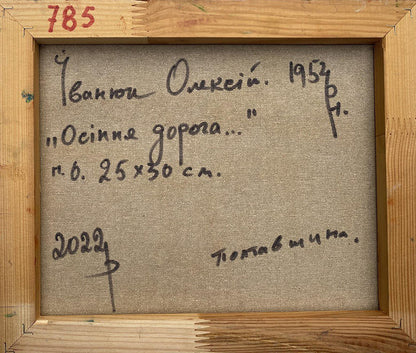 785
Іванюк Олексій. 1952 р.н.
„Осіння дорога..."
п.о. 25×30 см.
2022 р
Полтавщина.